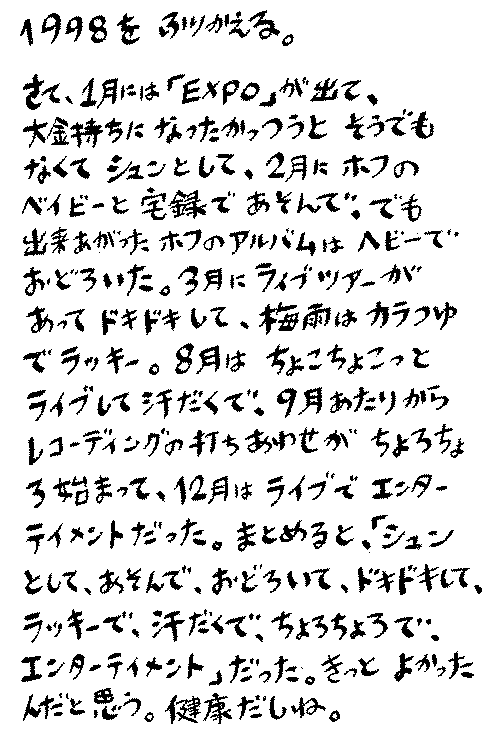 1998を ふりかえる。
さて、1月には「EXPO」が出て、
大金持ちに なったかっつうと そうでも
なくて シュンとして、2月に ホフの
ベイビーと 宅録で あそんで、でも
出来あがった ホフのアルバムは ヘビーで
おどろいた。3月に ライブツアーが
あって ドキドキして、梅雨は カラつゆ
で ラッキー。8月は ちょこちょこっと
ライブして 汗だくで、9月あたりから
レコーディングの打ちあわせが ちょろちょ
ろ始まって、12月は ライブで エンター
テイメントだった。まとめると、「シュン
として、あそんで、おどろいて、ドキドキして、
ラッキーで、汗だくで、ちょろちょろで、
エンターテイメント」だった。きっと よかった
んだと思う。健康だしね。